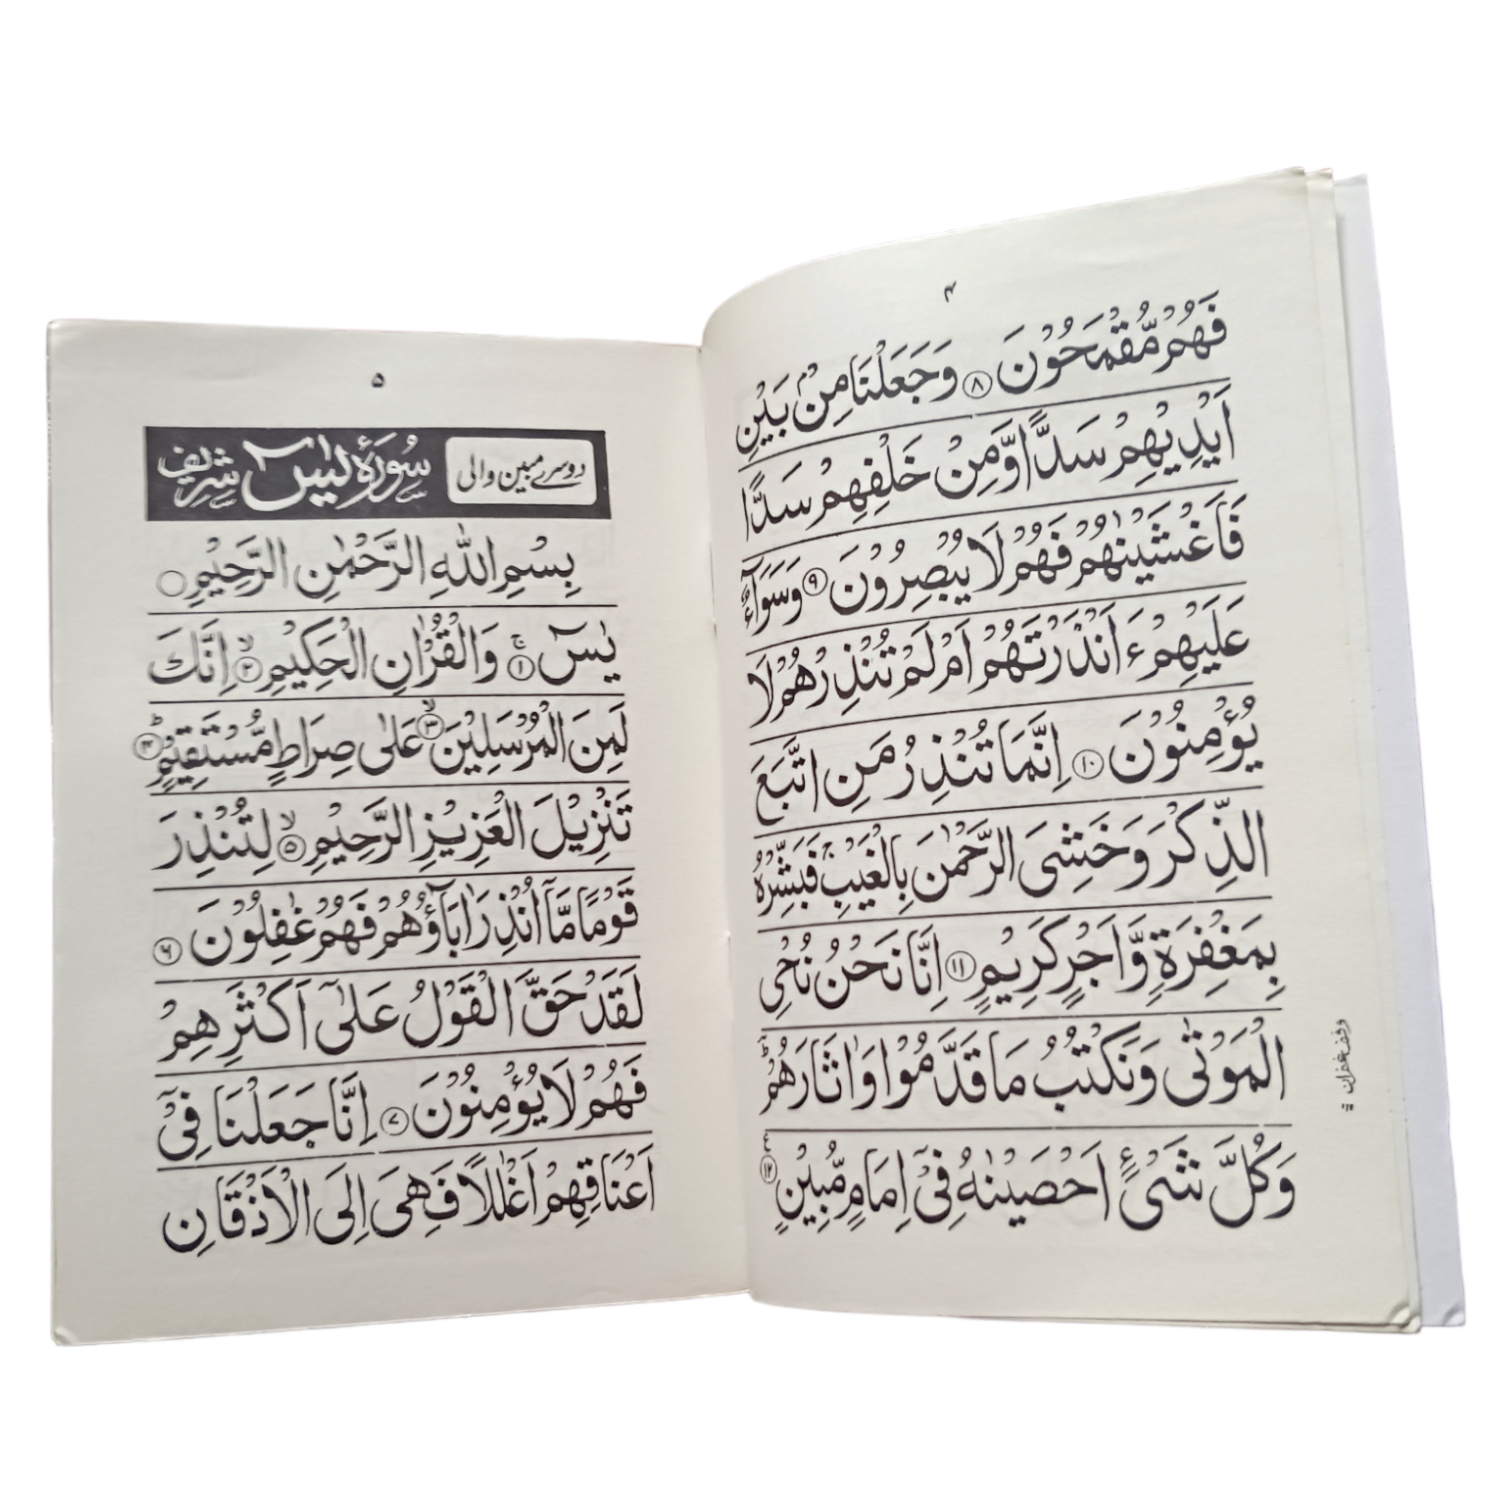 ۴
فَهُمْ مُّقْمَحُوْنَ ۝۸ وَجَعَلْنَا مِنْۢ بَيْنِ
اَيْدِيْهِمْ سَدًّا وَّمِنْ خَلْفِهِمْ سَدًّا
فَاَغْشَيْنٰهُمْ فَهُمْ لَا يُبْصِرُوْنَ ۝۹ وَسَوَآءٌ
عَلَيْهِمْ ءَاَنْذَرْتَهُمْ اَمْ لَمْ تُنْذِرْهُمْ لَا
يُؤْمِنُوْنَ ۝۱۰ اِنَّمَا تُنْذِرُ مَنِ اتَّبَعَ
الذِّكْرَ وَخَشِىَ الرَّحْمٰنَ بِالْغَيْبِ ۚ فَبَشِّرْهُ
بِمَغْفِرَةٍ وَّاَجْرٍ كَرِيْمٍ ۝۱۱ اِنَّا نَحْنُ نُحْىِ
الْمَوْتٰى وَنَكْتُبُ مَا قَدَّمُوْا وَاٰثَارَهُمْ ؕ
وَكُلَّ شَىْءٍ اَحْصَيْنٰهُ فِىْٓ اِمَامٍ مُّبِيْنٍ ۝۱۲
وقف غفران
۵
دوسرے مبین والی سُورَۃُ یٰسٓ شریف
بِسْمِ اللهِ الرَّحْمٰنِ الرَّحِيْمِ ۝
يٰسٓ ۝۱ۚ وَالْقُرْاٰنِ الْحَكِيْمِ ۝۲ۙ اِنَّكَ
لَمِنَ الْمُرْسَلِيْنَ ۝۳ۙ عَلٰى صِرَاطٍ مُّسْتَقِيْمٍ ۝۴ؕ
تَنْزِيْلَ الْعَزِيْزِ الرَّحِيْمِ ۝۵ۙ لِتُنْذِرَ
قَوْمًا مَّآ اُنْذِرَ اٰبَآؤُهُمْ فَهُمْ غٰفِلُوْنَ ۝۶
لَقَدْ حَقَّ الْقَوْلُ عَلٰٓى اَكْثَرِهِمْ
فَهُمْ لَا يُؤْمِنُوْنَ ۝۷ اِنَّا جَعَلْنَا فِىْٓ
اَعْنَاقِهِمْ اَغْلٰلًا فَهِىَ اِلَى الْاَذْقَانِ